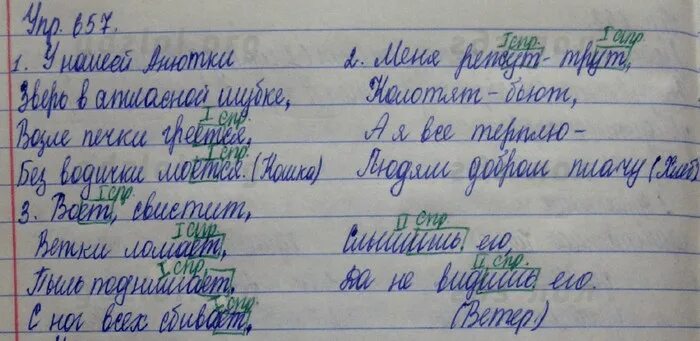 Упр. 657.
1. У нашей Анютки
Зверь в атласной шубке,
I спр.
Возле печки греется,
I спр.
Без водички моется. (Кошка)
I спр. I спр.
2. Меня режут - трут,
Колотят - бьют,
А я все терплю -
Людям добром плачу (Хлеб)
I спр.
3. Воет, свистит,
I спр.
Ветки ломает,
I спр.
Пыль поднимает,
I спр.
С ног всех сбивает,
II спр.
Слышишь его,
II спр.
Да не видишь его.
(Ветер.)